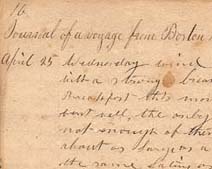 16
Journal of a voyage from Boston
April 25 Wednesday wind
with a strong brea
this mor
dont sell, the only
not enough of the
about as large as a
the same